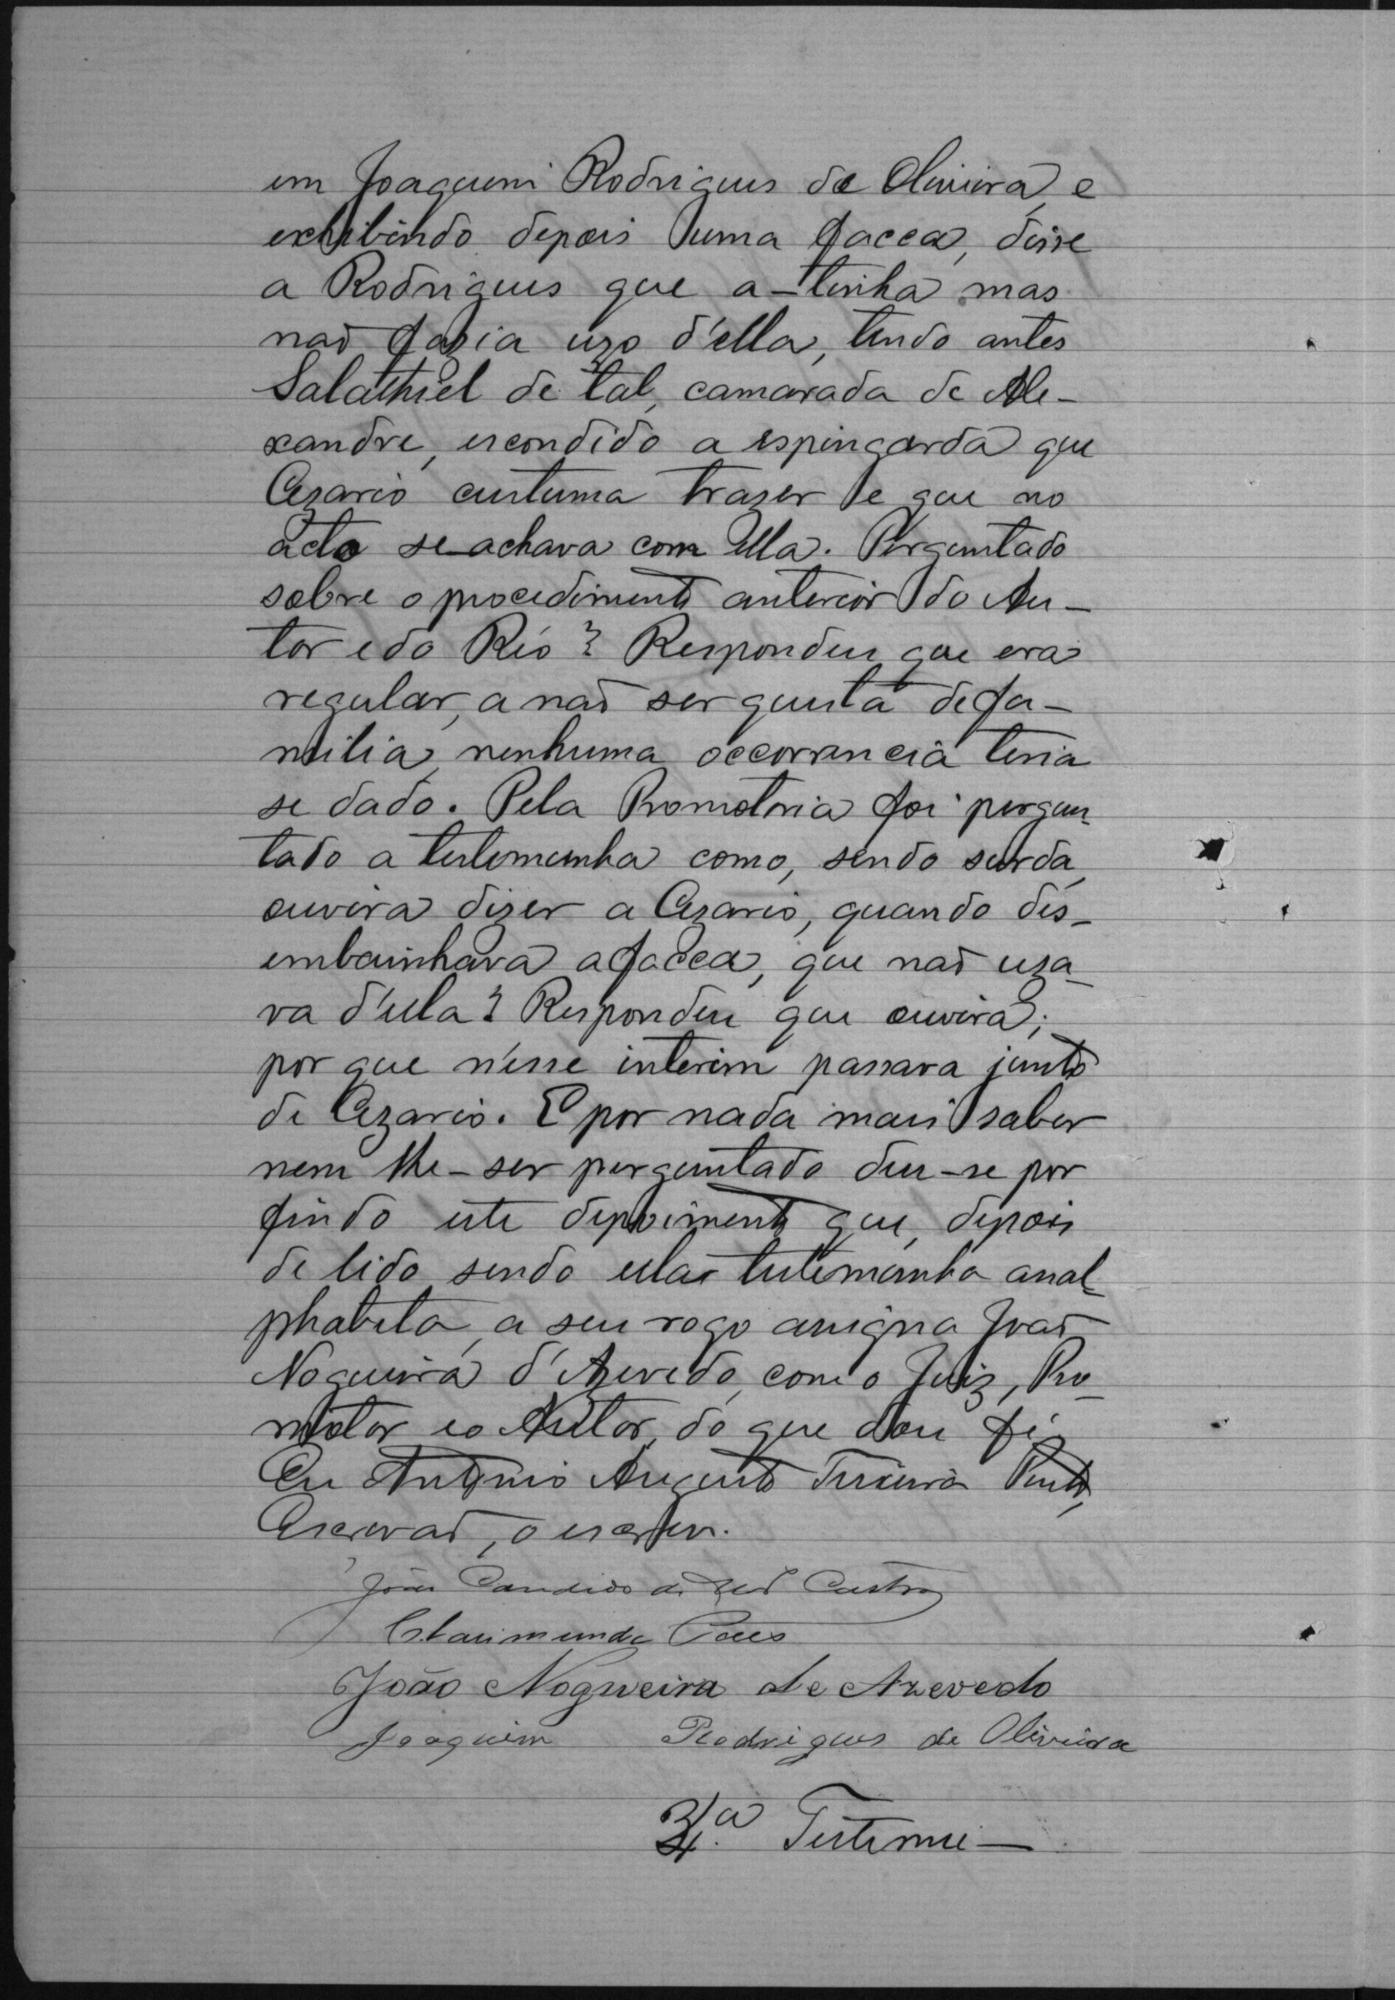 em Joaquim Rodrigues de Oliveira, e
exhibindo depois uma facca, disse
a Rodrigues que a-tinha mas
não fazia uzo d'ella, tendo antes
Salathiel de tal, camarada de Ale-
xandre, escondido a espingarda que
Cezario custuma trazer e que no
acto se achava com ella. Perguntado
sobre o procedimento anterior do Au-
tor e do Réo? Respondeu que era
regular, a não ser questa de fa-
milia, nenhuma occorrancia teria
se dado. Pela Promotoria foi pergun-
tado a testemunha como, sendo surda,
ouvira dizer a Cezario, quando des-
embainhava a facca, que não uza-
va d'ella? Respondeu que ouvira;
por que n'esse interim passava junto
de Cezario. E por nada mais saber
nem lhe-ser perguntado deu-se por
findo este depoimento que, depois
de lido, sendo esta testemunha anal-
phabeta, a seu rogo assigna João
Nogueira d'Azevedo, com o Juiz, Pro-
motor e o Autor, do que dou fé,
Eu Antonio Augusto Teixeira Pinto,
Escrivão, o escrevi.
João Candido de Castro
Clarimundo Paes
João Nogueira de Azevedo
Joaquim Rodrigues de Oliveira
4.ª Testemu-